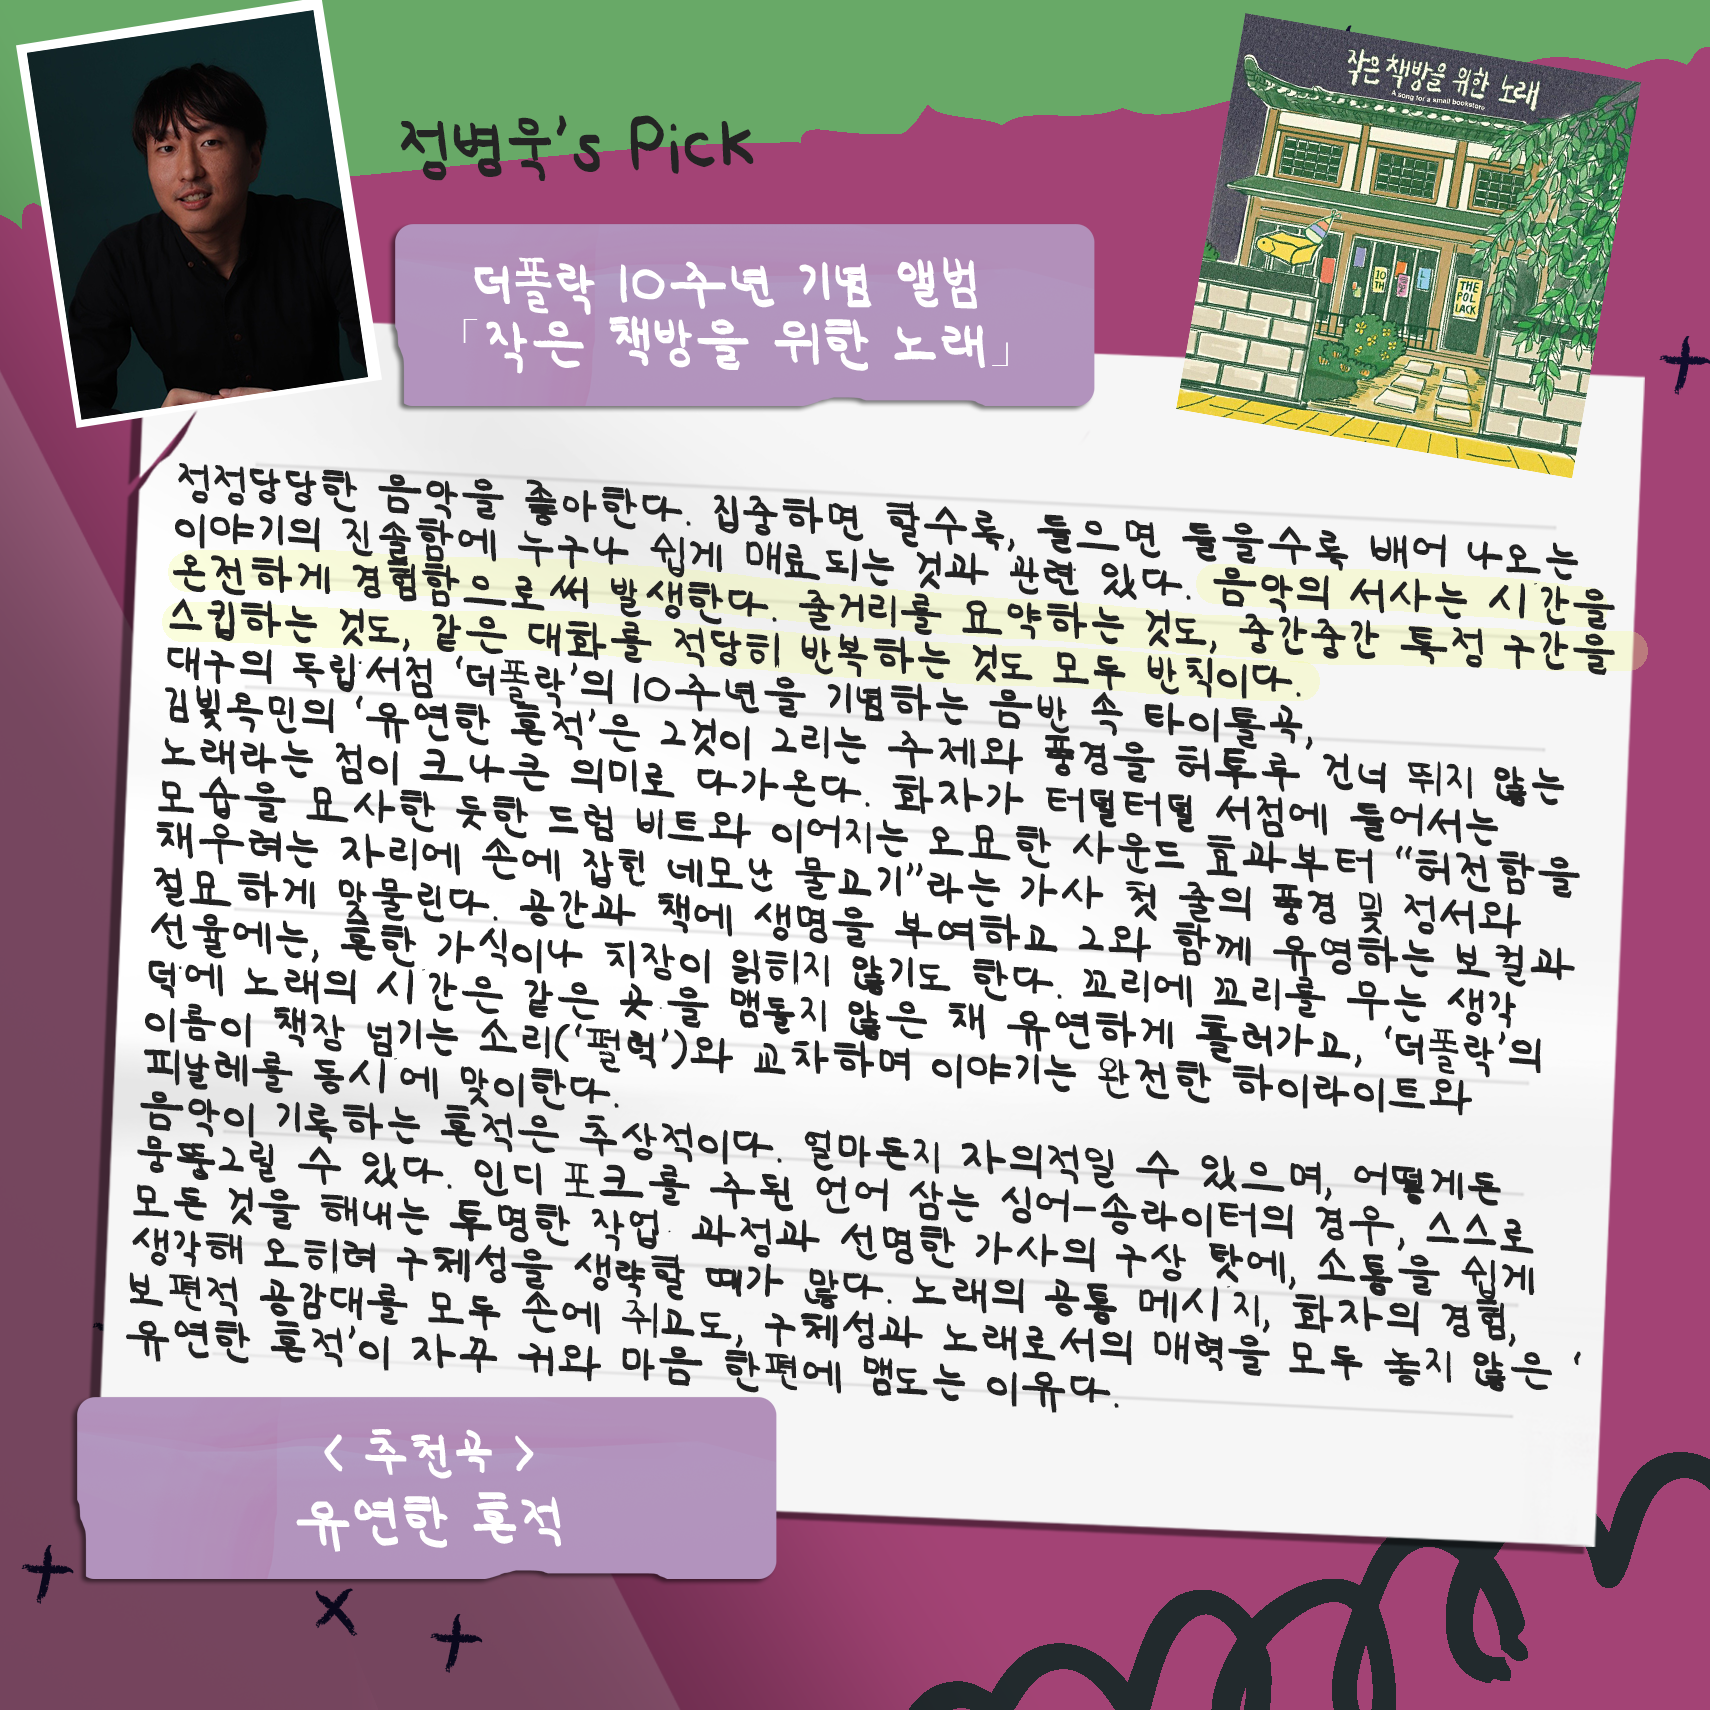 정병욱's Pick
더폴락 10주년 기념 앨범
「작은 책방을 위한 노래」
작은 책방을 위한 노래
A song for a small bookstore
10
TH
THE
POL
LACK
정정당당한 음악을 좋아한다. 집중하면 할수록, 들으면 들을수록 배어 나오는
이야기의 진솔함에 누구나 쉽게 매료되는 것과 관련 있다. 음악의 서사는 시간을
온전하게 경험함으로써 발생한다. 줄거리를 요약하는 것도, 중간중간 특정 구간을
스킵하는 것도, 같은 대화를 적당히 반복하는 것도 모두 반칙이다.
대구의 독립서점 '더폴락'의 10주년을 기념하는 음반 속 타이틀곡,
김빛옥민의 '유연한 흔적'은 그것이 그리는 주제와 풍경을 허투루 건너 뛰지 않는
노래라는 점이 크나큰 의미로 다가온다. 화자가 터덜터덜 서점에 들어서는
모습을 묘사한 듯한 드럼 비트와 이어지는 오묘한 사운드 효과부터 “허전함을
채우려는 자리에 손에 잡힌 네모난 물고기”라는 가사 첫 줄의 풍경 및 정서와
절묘하게 맞물린다. 공간과 책에 생명을 부여하고 그와 함께 유영하는 보컬과
선율에는, 흔한 가식이나 치장이 읽히지 않기도 한다. 꼬리에 꼬리를 무는 생각
덕에 노래의 시간은 같은 곳을 맴돌지 않은 채 유연하게 흘러가고, '더폴락'의
이름이 책장 넘기는 소리('펄럭')와 교차하며 이야기는 완전한 하이라이트와
피날레를 동시에 맞이한다.
음악이 기록하는 흔적은 추상적이다. 얼마든지 자의적일 수 있으며, 어떻게든
뭉뚱그릴 수 있다. 인디 포크를 주된 언어 삼는 싱어-송라이터의 경우, 스스로
모든 것을 해내는 투명한 작업 과정과 선명한 가사의 구상 탓에, 소통을 쉽게
생각해 오히려 구체성을 생략할 때가 많다. 노래의 공통 메시지, 화자의 경험,
보편적 공감대를 모두 손에 쥐고도, 구체성과 노래로서의 매력을 모두 놓지 않은 '
유연한 흔적'이 자꾸 귀와 마음 한편에 맴도는 이유다.
< 추천곡 >
유연한 흔적